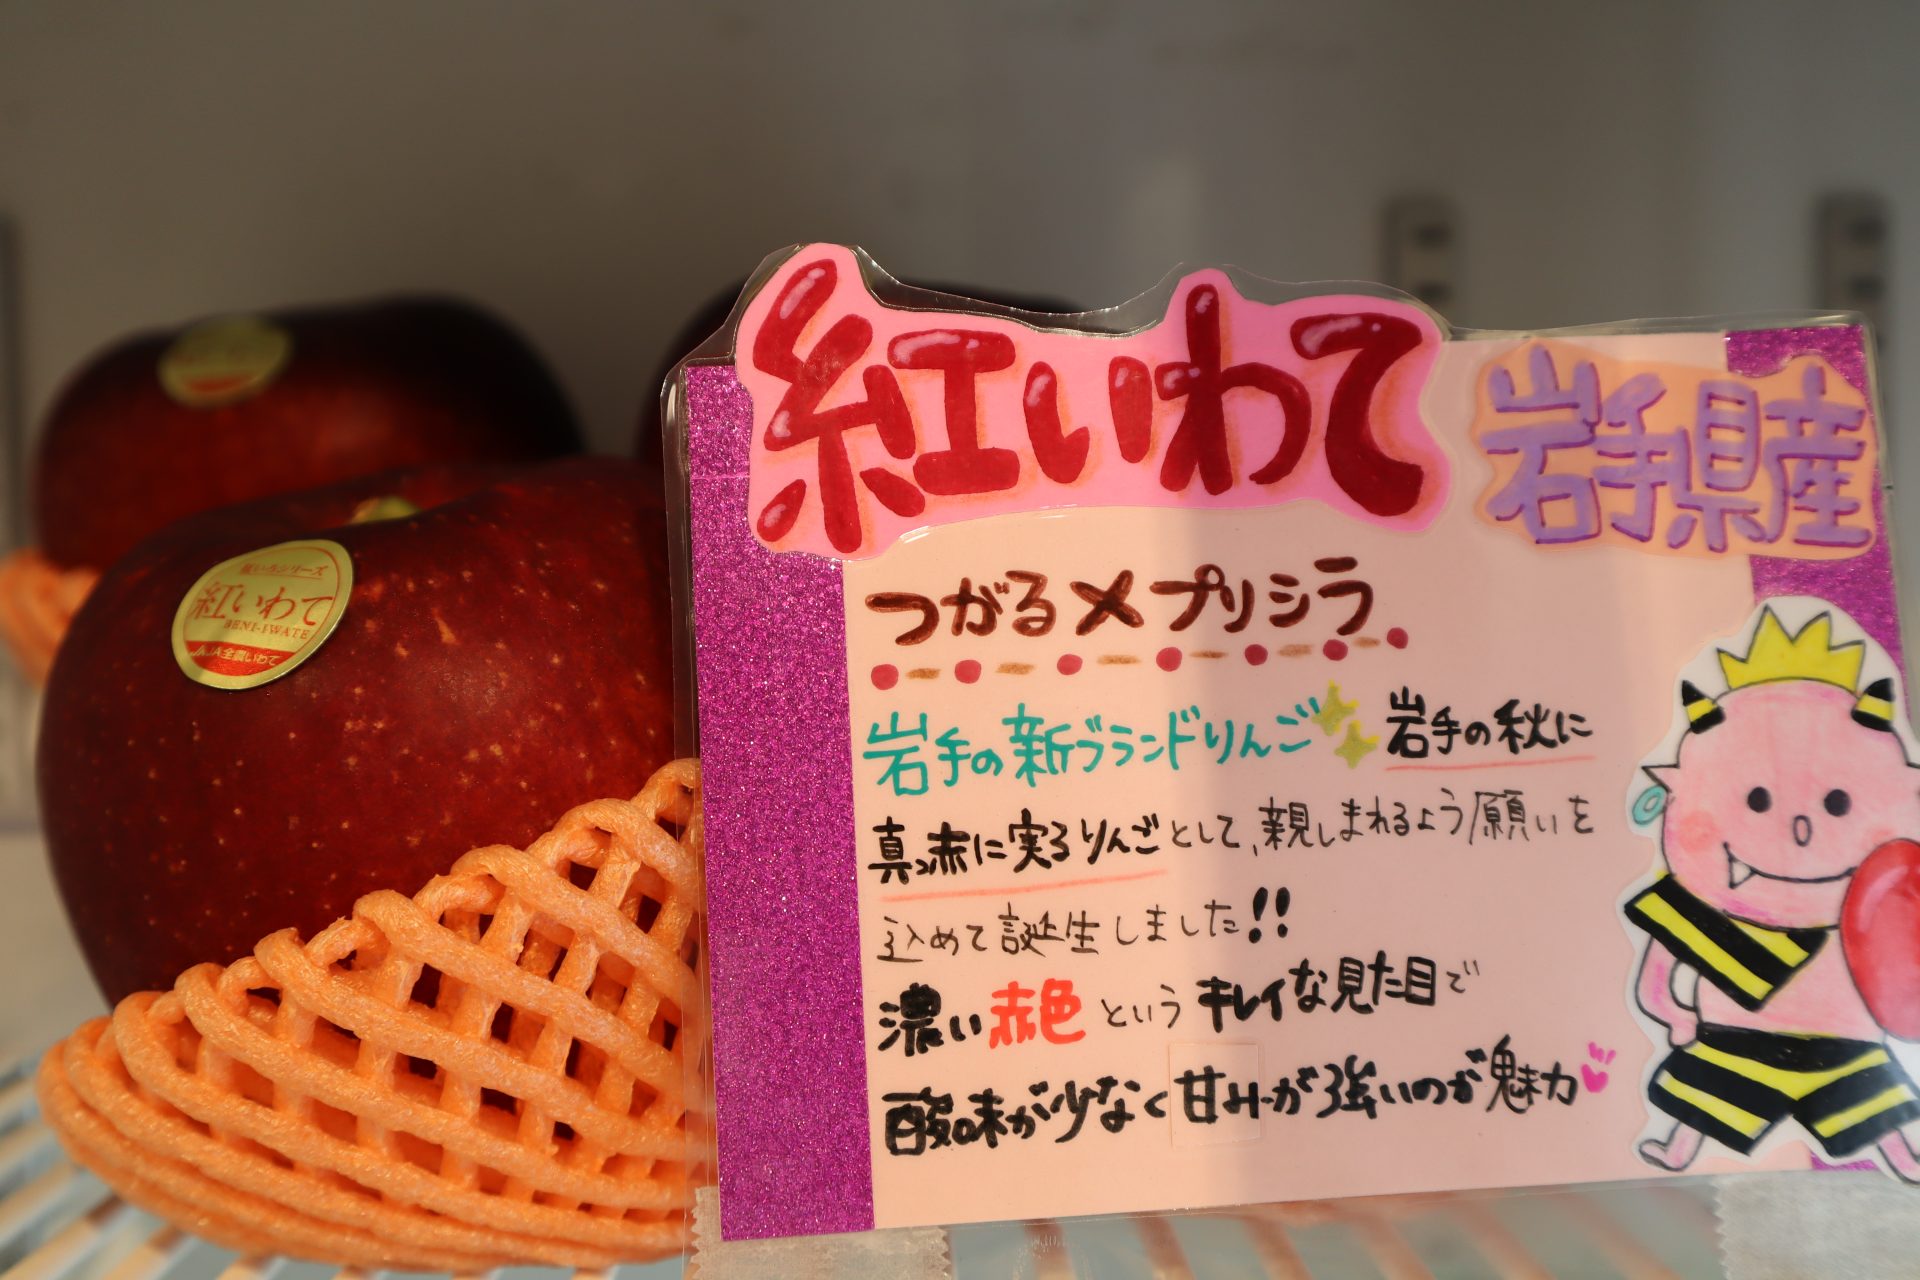 紅いわて
岩手県産
つがる×プリシラ
岩手の新ブランドりんご 岩手の秋に
真っ赤に実るりんごとして、親しまれるよう願いを
込めて誕生しました!!
濃い赤色というキレイな見た目で
酸味が少なく甘みが強いのが魅力
紅いわて
BENI-IWATE
JA全農いわて